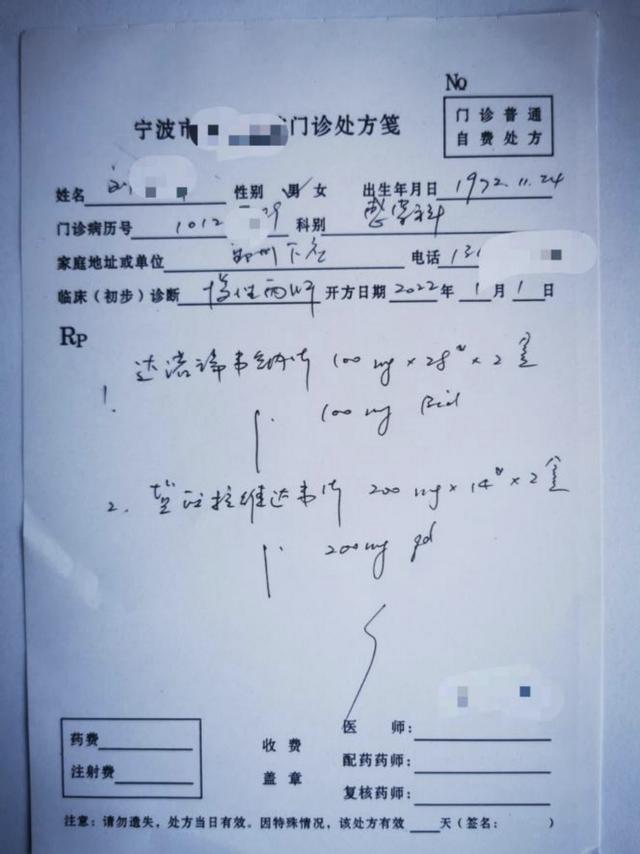 No
门诊普通
自费处方
宁波市 门诊处方笺
姓名 性别 男 女 出生年月日 1972.11.24
门诊病历号 1012 29 科别 感染科
家庭地址或单位 鄞州下应 电话 131
临床（初步）诊断 慢性丙肝 开方日期 2022 年 1 月 1 日
Rp
1. 达诺瑞韦钠片 100mg×28#×2盒
100mg Bid
2. 盐酸拉维达韦片 200mg×14#×2盒
200mg qd
药费
注射费
收费
盖章
医 师：
配药药师：
复核药师：
注意：请勿遗失，处方当日有效。因特殊情况，该处方有效 天（签名： ）